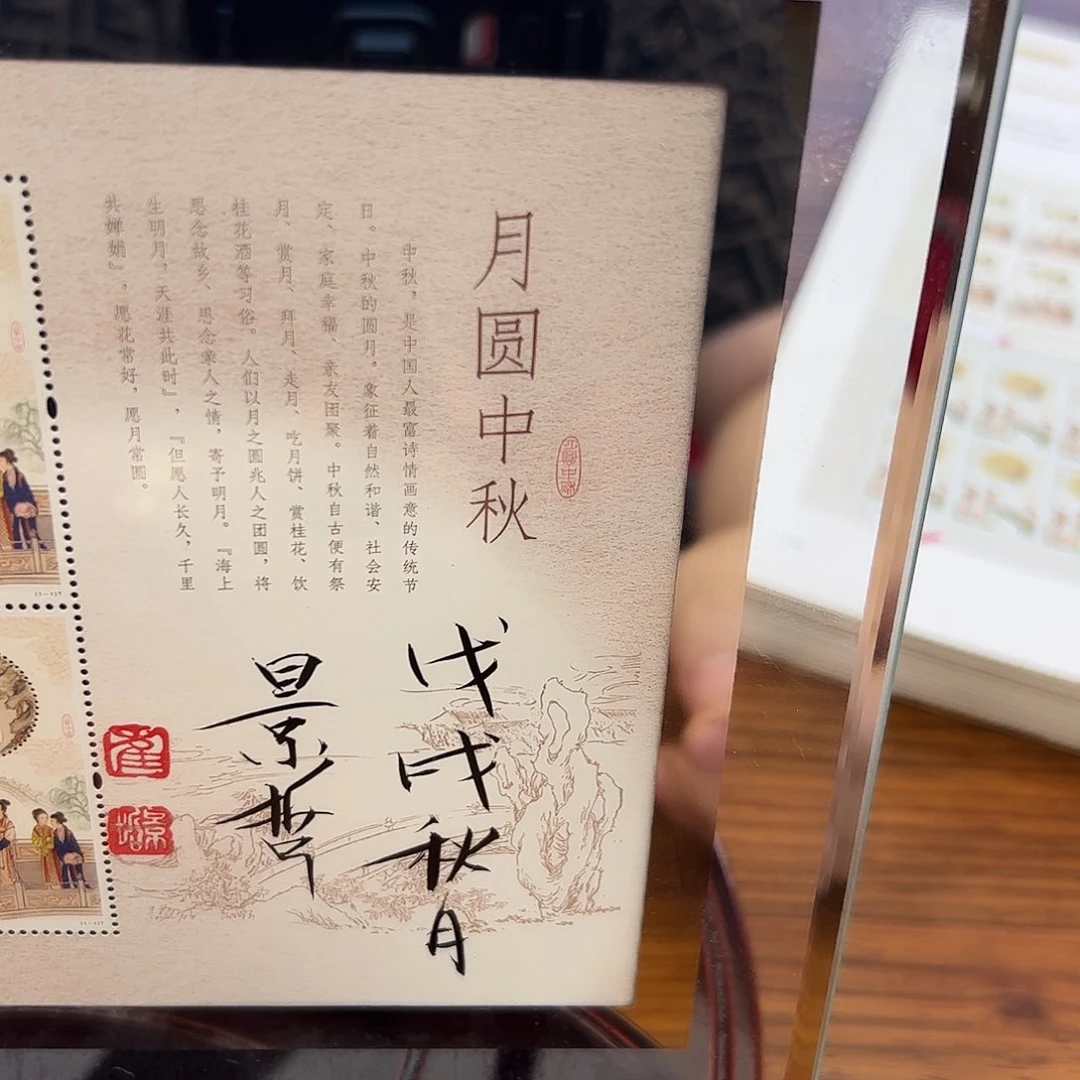 月圆中秋
中秋，是中国人最富诗情画意的传统节
日。中秋的圆月，象征着自然和谐、社会安
定、家庭幸福、亲友团聚。中秋自古便有祭
月、赏月、拜月、走月、吃月饼、赏桂花、饮
桂花酒等习俗。人们以月之圆兆人之团圆，将
思念故乡、思念亲人之情，寄予明月。『海上
生明月，天涯共此时』，『但愿人长久，千里
共婵娟』。愿花常好，愿月常圆。
戊戌秋月
景哲